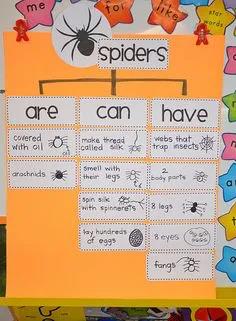 me
are
for
like
star
words
spiders
are
can
have
covered
with oil
arachnids
make thread
called silk
smell with
their legs
spin silk
with spinnerets
lay hundreds
of eggs
webs that
trap insects
2
body parts
8 legs
8 eyes
fangs